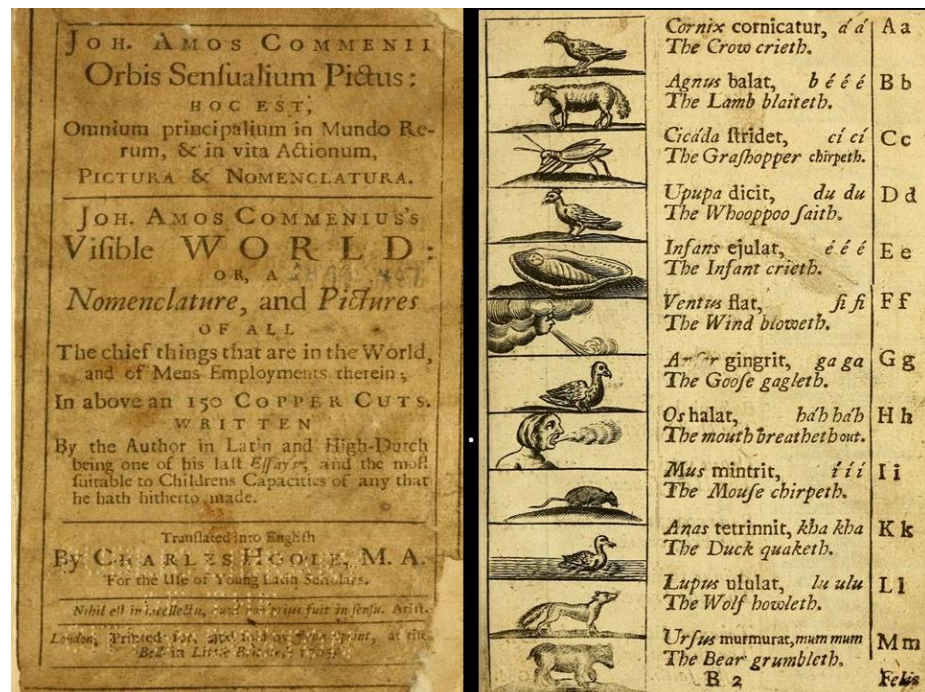 JOH. AMOS COMMENII
Orbis Senſualium Pictus:
HOC EST,
Omnium principalium in Mundo Re-
rum, & in vita Actionum,
PICTURA & NOMENCLATURA.
JOH. AMOS COMMENIUS'S
Viſible WORLD:
OR, A
Nomenclature, and Pictures
OF ALL
The chief things that are in the World,
and of Mens Employments therein;
In above an 150 COPPER CUTS.
WRITTEN
By the Author in Latin and High-Dutch
being one of his laſt Eſſays, and the moſt
ſuitable to Childrens Capacities of any that
he hath hitherto made.
Tranſlated into Engliſh
By CHARLES HOOLE, M. A.
For the Uſe of Young Latin Scholars.
Nihil eſt in intellectu, quod non prius fuit in ſenſu. Ariſt.
London, Printed for, and ſold by John Sprint, at the
Bell in Little Britain, 1705.
Cornix cornicatur, á á A a
The Crow crieth.
Agnus balat, b é é é B b
The Lamb blaiteth.
Cicáda ſtridet, cí cí C c
The Graſhopper chirpeth.
Upupa dicit, du du D d
The Whooppoo ſaith.
Infans ejulat, é é é E e
The Infant crieth.
Ventus flat, fi fi F f
The Wind bloweth.
Anſer gingrit, ga ga G g
The Gooſe gagleth.
Os halat, háh háh H h
The mouth breatheth out.
Mus mintrit, í í í I i
The Mouſe chirpeth.
Anas tetrinnit, kha kha K k
The Duck quaketh.
Lupus ululat, lu ulu L l
The Wolf howleth.
Urſus murmurat, mum mum M m
The Bear grumbleth.
B 2 Felis